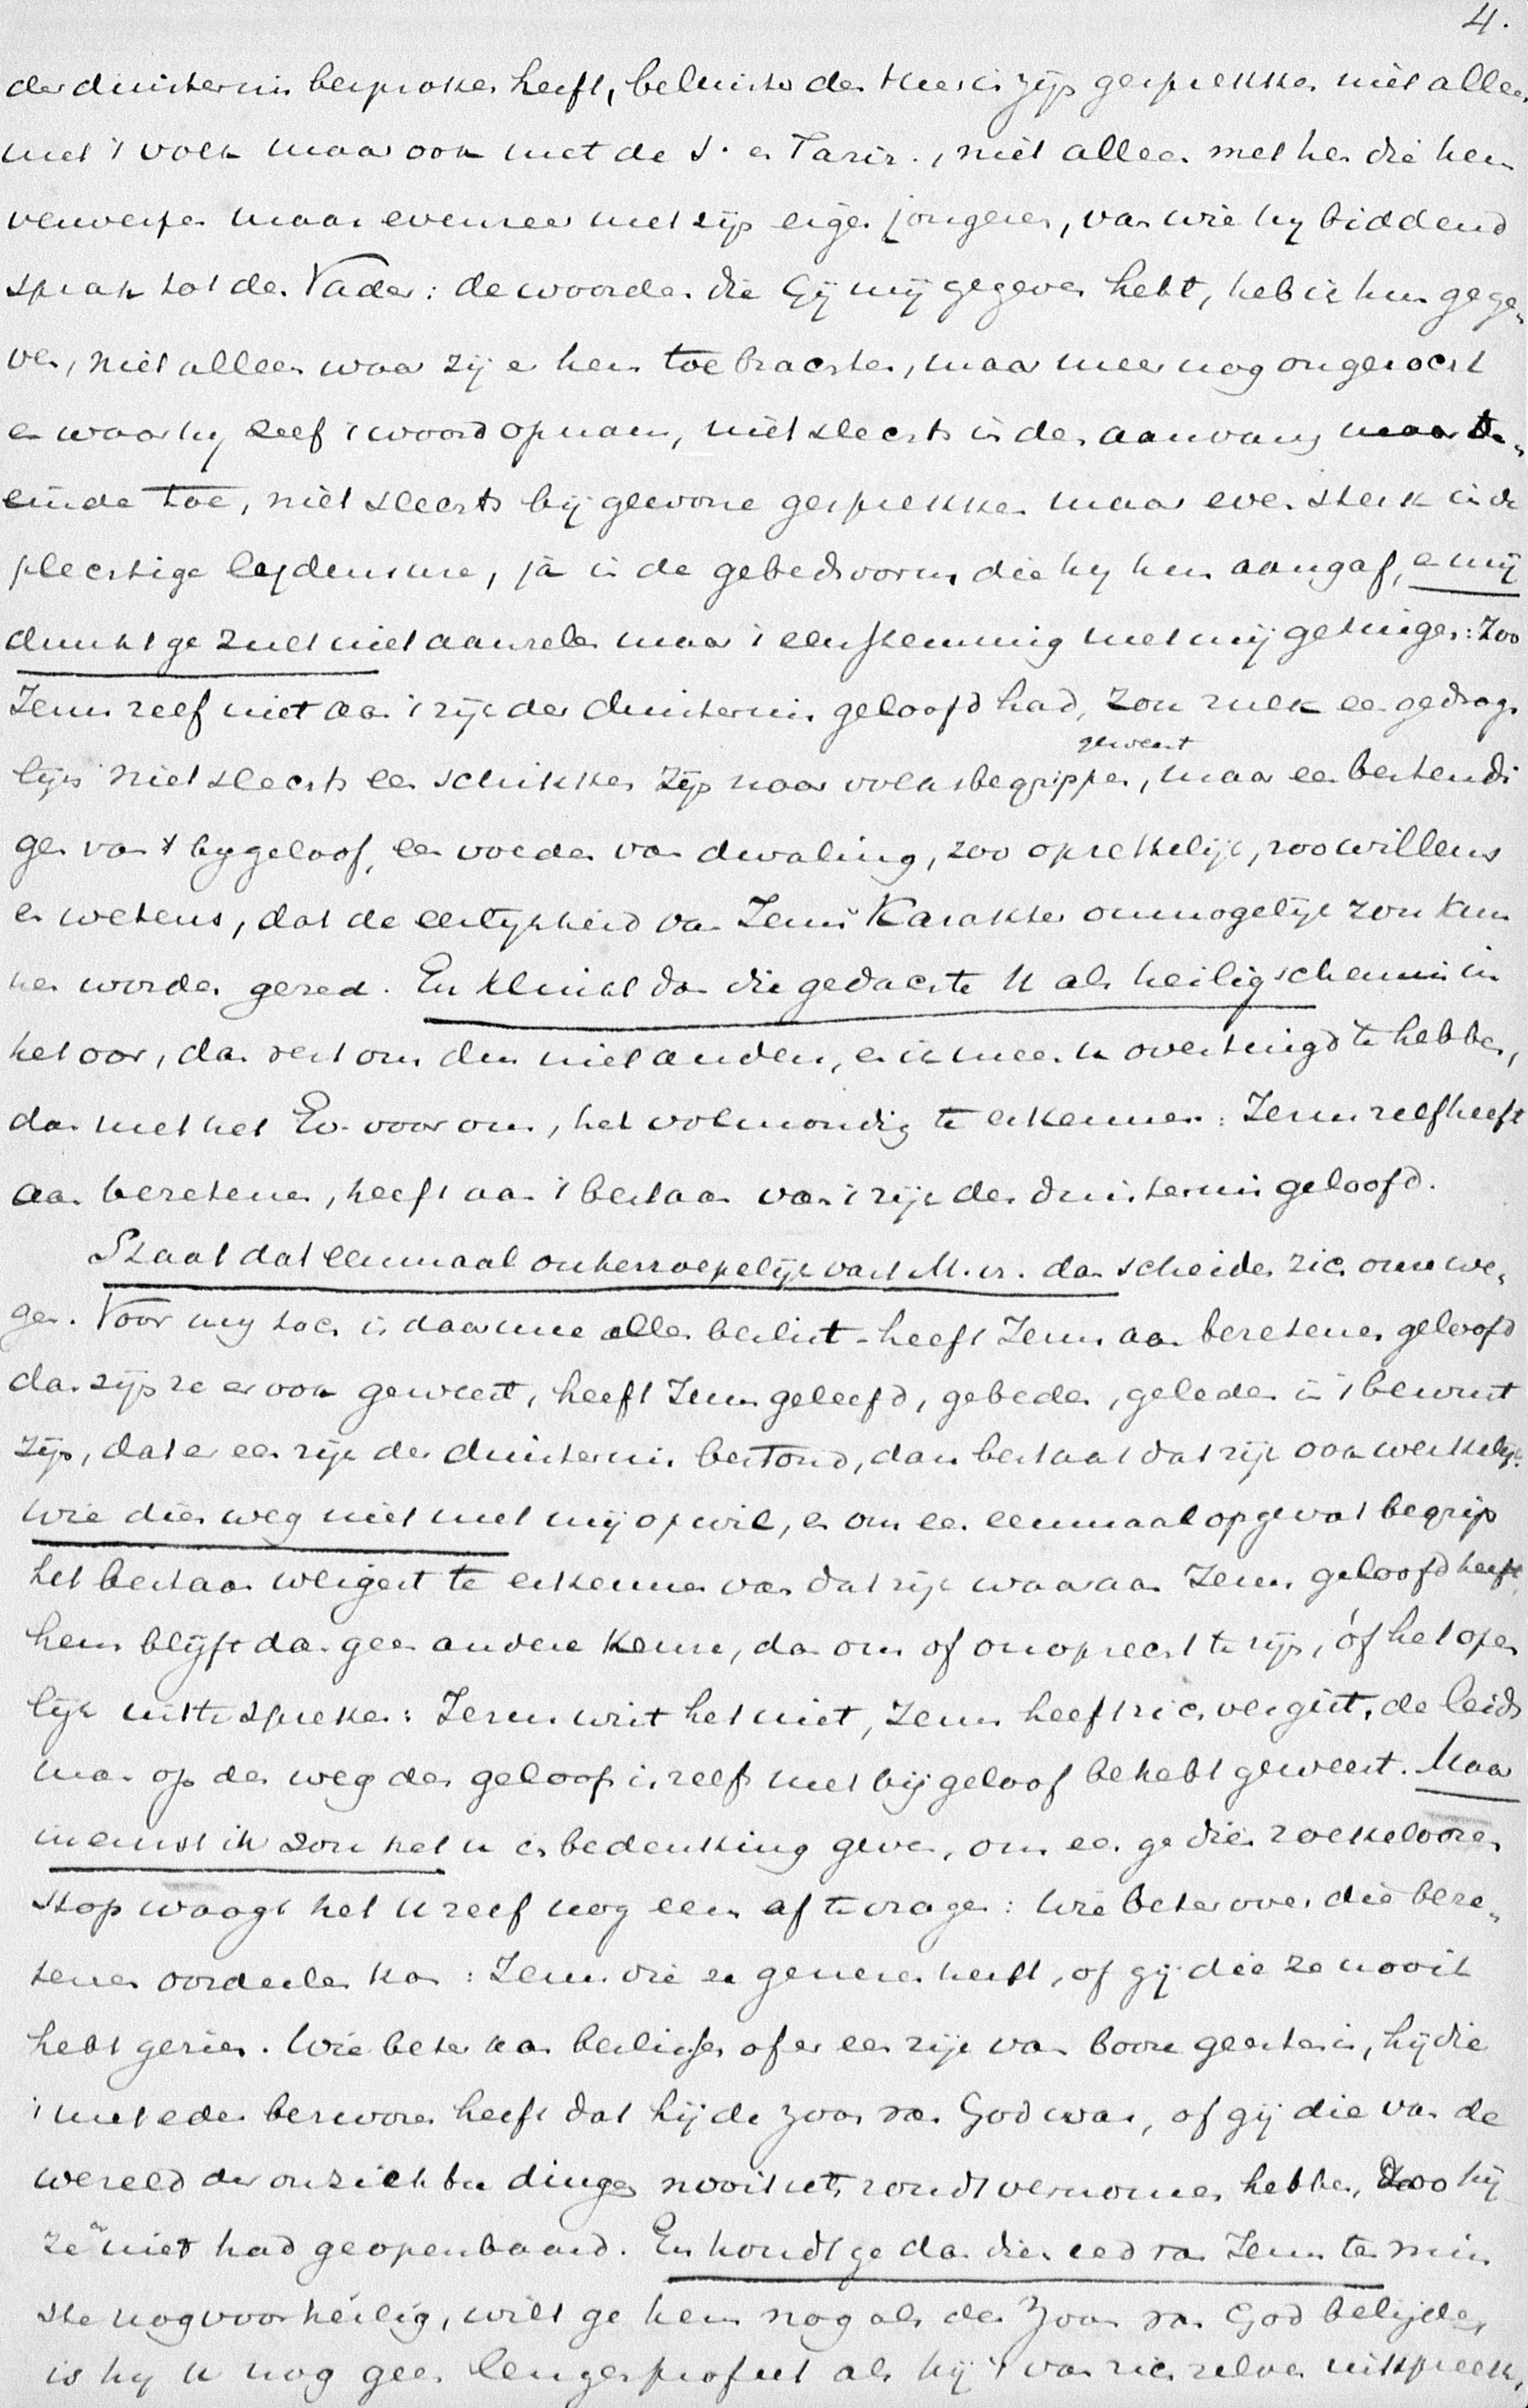 4.
der duisternis besproken heeft, beluister den Heer in zijn gesprekken niet alleen
met 't volk maar ook met de S. en Fariz., niet alleen met hen die hem
verwerpen maar evenzeer met zijn eigen jongeren, van wie hij biddend
sprak tot den Vader: de woorden die Gij mij gegeven hebt, heb ik hun gege-
ven, niet alleen waar zij er hem toe brachten, maar meer nog ongezocht
en waar hij zelf 't woord opnam, niet slechts in den aanvang maar ten
einde toe, niet slechts bij gewone gesprekken maar even sterk in de
plechtige lijdensure, ja in de gebedsvorm die hij hun aangaf, en mij
dunkt ge zult niet aarzelen maar 't eenstemmig met mij getuigen: Zoo
Jezus zelf niet aan 't rijk der duisternis geloofd had, zou zulk een gedrags
lijn niet slechts een schikken zijn geweest naar volksbegrippen, maar een bestendi
gen van 't bijgeloof, een voeden van dwaling, zoo opzettelijk, zoo willens
en wetens, dat de eerlijkheid van Jezus' Karakter onmogelijk zou kun
nen worden gered. En klinkt dan die gedachte U als heiligschennis in
het oor, dan rest ons dus niet anders, en ik meen u overtuigd te hebben,
dan met het Ev. voor ons, het volmondig te erkennen: Jezus zelf heeft
aan bezetenen, heeft aan 't bestaan van 't rijk der duisternis geloofd.
Staat dat eenmaal onherroepelijk vast M. vr. dan scheiden zich onze we-
gen. Voor mij toch is daarmee alles beslist - heeft Jezus aan bezetenen geloofd
dan zijn ze er ook geweest, heeft Jezus geleefd, gebeden, geleden in 't bewust
zijn, dat er een rijk der duisternis bestond, dan bestaat dat rijk ook werkelijk.
Wie dien weg niet met mij op wil, en om een eenmaal opgevat begrip
het bestaan weigert te erkennen van dat rijk waaraan Jezus geloofd heeft,
hem blijft dan geen andere keuze, dan om of onoprecht te zijn, óf het open
lijk uit te spreken: Jezus wist het niet, Jezus heeft zich vergist, de leids
man op den weg des geloofs is zelf met bijgeloof behebt geweest. Maar
in ernst ik zou het u in bedenking geven, om eer ge dien roekeloozen
stap waagt het U zelf nog eens af te vragen: Wie beter over die beze-
tenen oordeelen kan: Jezus die ze genezen heeft, of gij die ze nooit
hebt gezien. Wie beter kan beslissen of er een rijk van booze geesten is, hij die
't met eeden bezworen heeft dat hij de Zoon van God was, of gij die van de
wereld der onzichtbre dingen nooit iets zoudt vernomen hebben, zoo hij
ze u niet had geopenbaard. En houdt ge dan dien eed van Jezus ten min
ste nog voor heilig, wilt ge hem nog als den Zoon van God belijden,
is hij U nog geen leugenprofeet als hij 't van zich zelven uitspreekt,